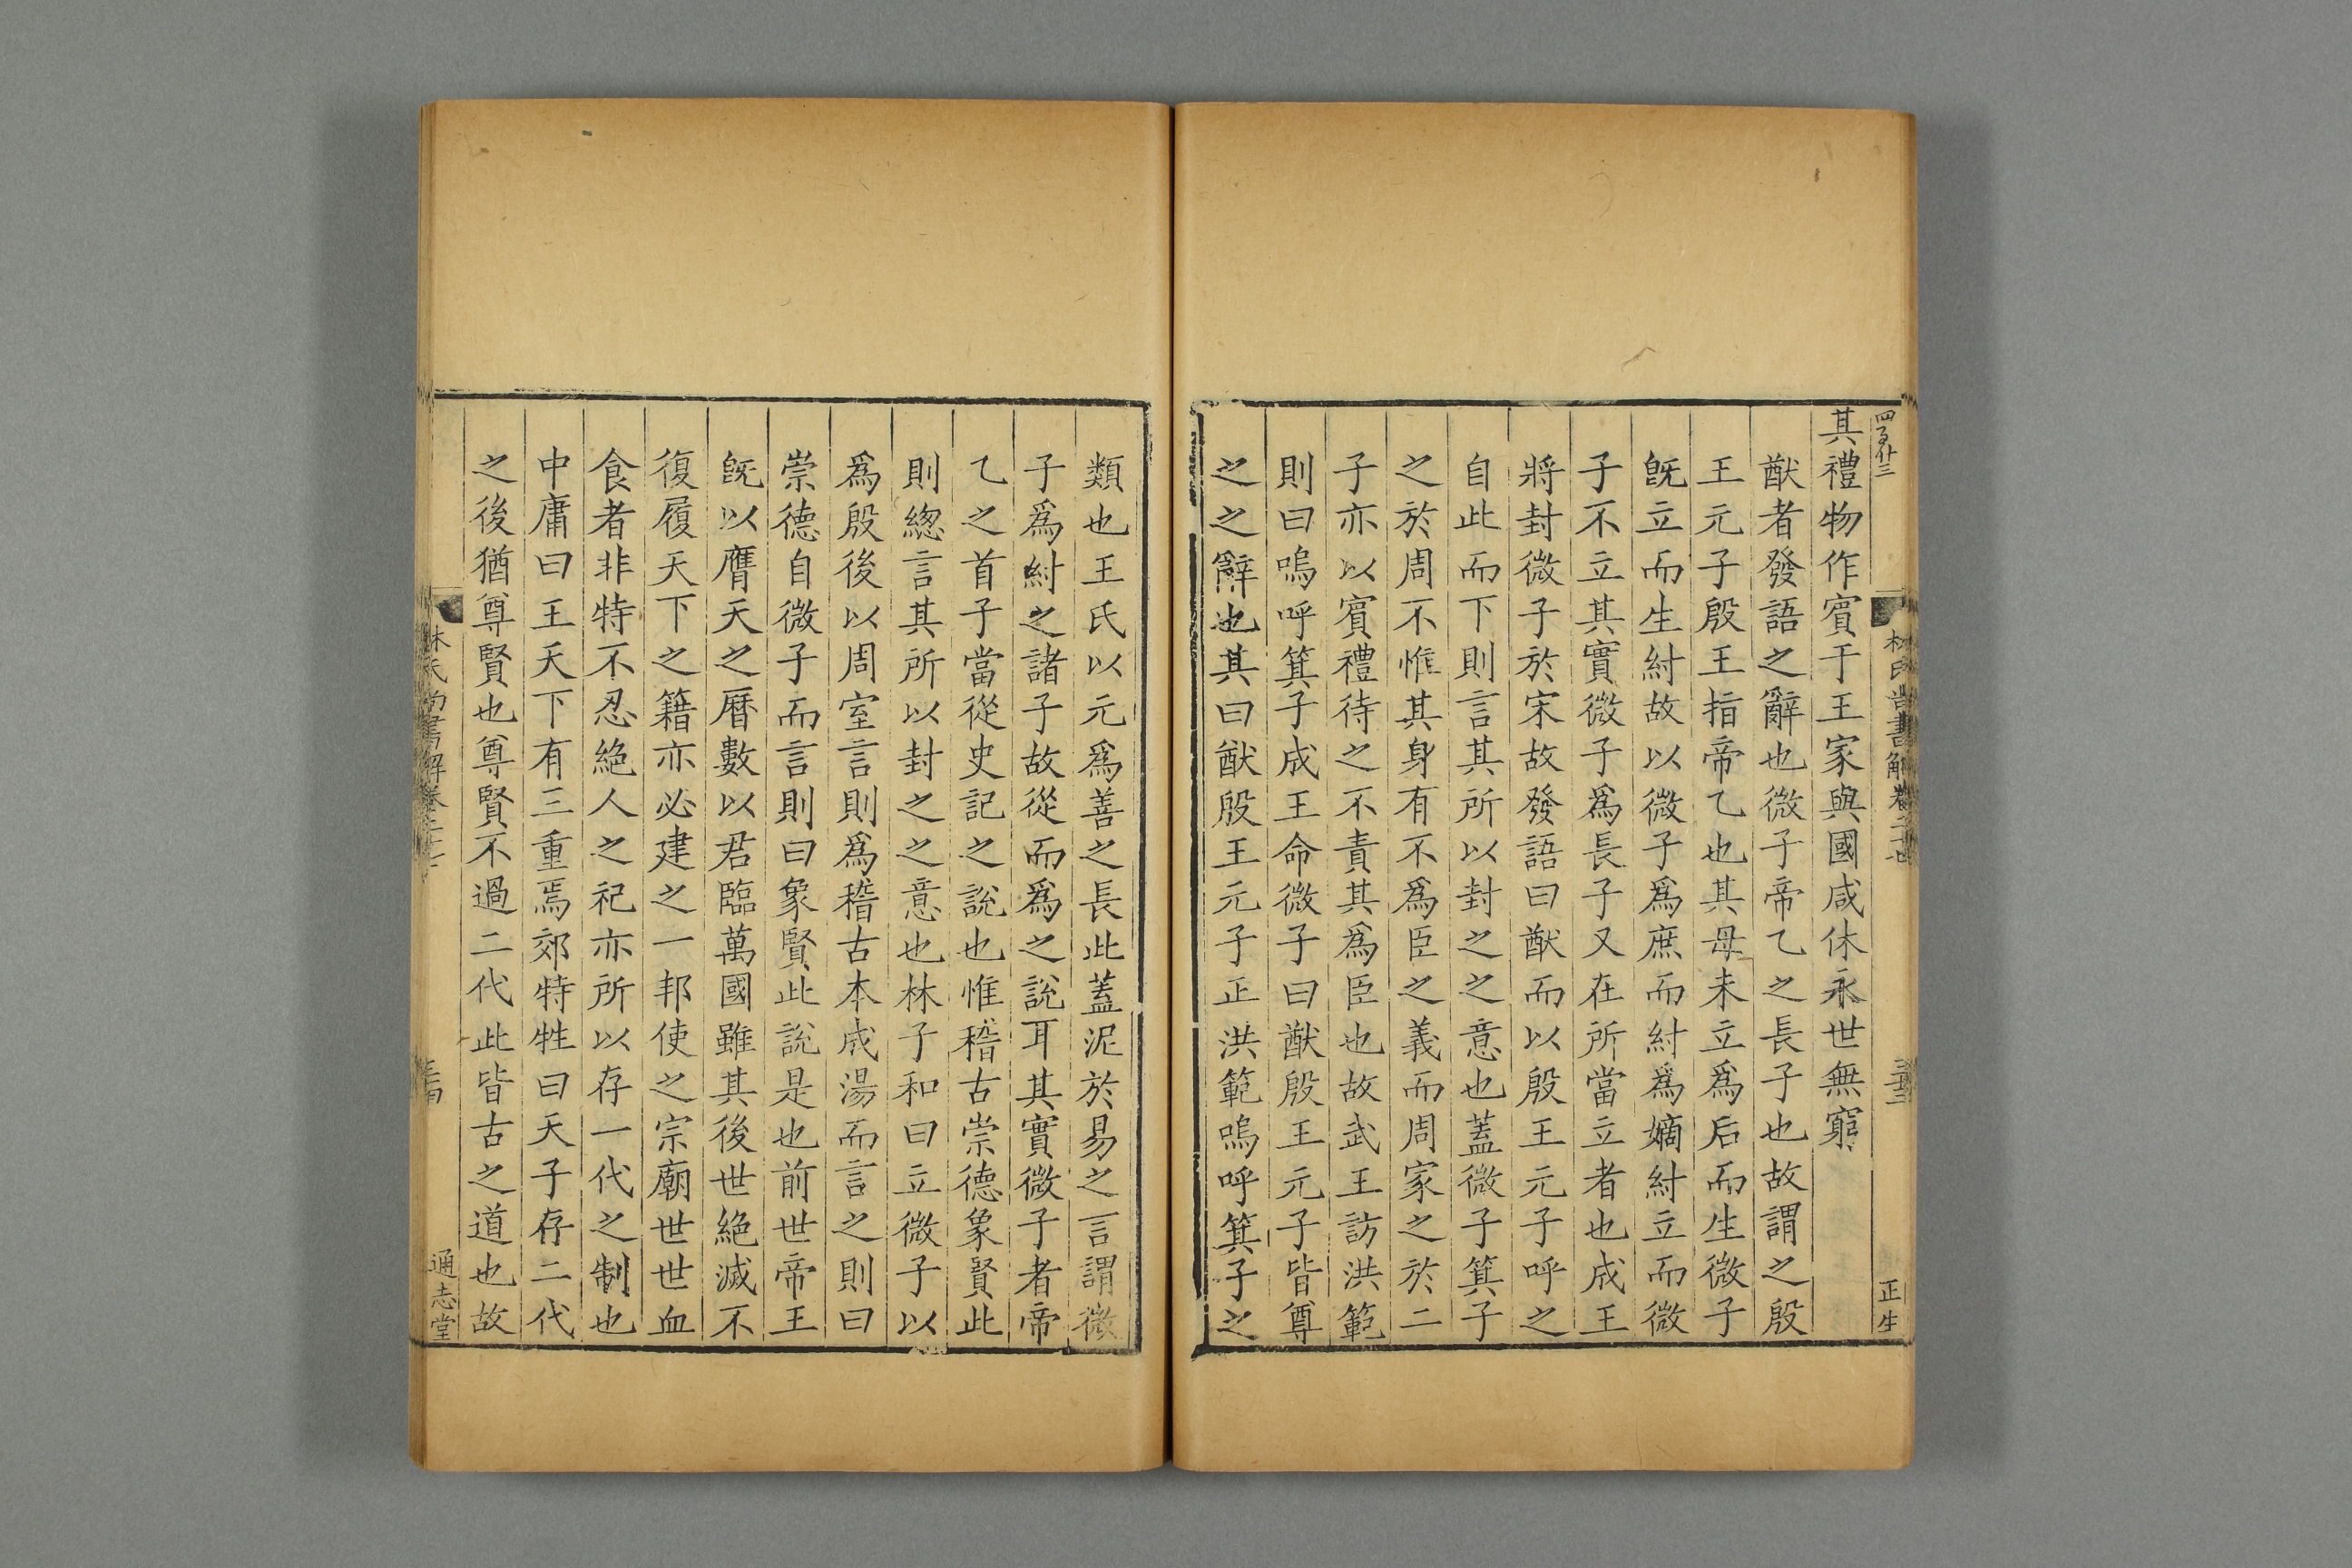 其禮物作賓于王家與國咸休永世無窮
猷者發語之辭也微子帝乙之長子也故謂之殷
王元子殷王指帝乙也其母未立爲后而生微子
旣立而生紂故以微子爲庶而紂爲嫡紂立而微
子不立其實微子爲長子又在所當立者也成王
將封微子於宋故發語曰猷而以殷王元子呼之
自此而下則言其所以封之之意也蓋微子箕子
之於周不惟其身有不爲臣之義而周家之於二
子亦以賓禮待之不責其爲臣也故武王訪洪範
則曰嗚呼箕子成王命微子曰猷殷王元子皆尊
之之辭也其曰猷殷王元子正洪範嗚呼箕子之
正生
類也王氏以元爲善之長此蓋泥於易之言謂微
子爲紂之諸子故從而爲之說耳其實微子者帝
乙之首子當從史記之說也惟稽古崇德象賢此
則緫言其所以封之之意也林子和曰立微子以
爲殷後以周室言則爲稽古本成湯而言之則曰
崇德自微子而言則曰象賢此說是也前世帝王
旣以膺天之曆數以君臨萬國雖其後世絕滅不
復履天下之籍亦必建之一邦使之宗廟世世血
食者非特不忍絕人之祀亦所以存一代之制也
中庸曰王天下有三重焉郊特牲曰天子存二代
之後猶尊賢也尊賢不過二代此皆古之道也故
通志堂